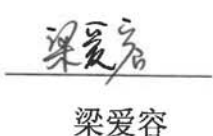 梁爱容
梁爱容